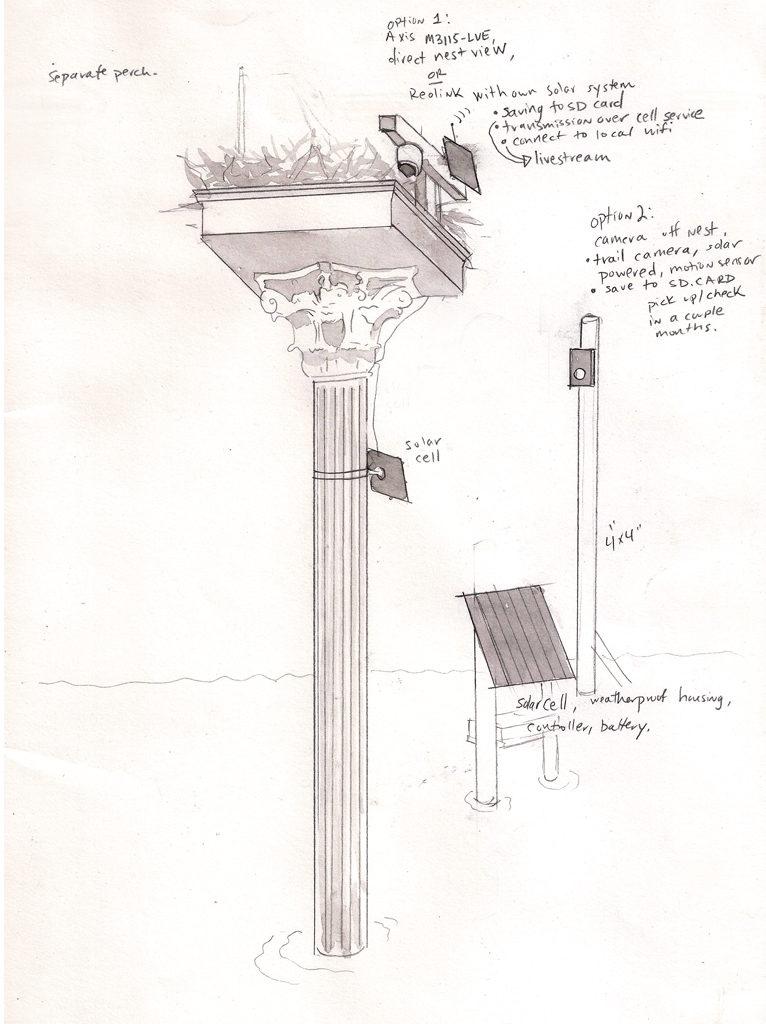 Separate perch.
OPTION 1:
Axis M3115-LVE,
direct nest view,
OR
Reolink with own solar system
• saving to SD card
• transmission over cell service
• connect to local wifi
livestream
OPTION 2:
camera off nest,
• trail camera, solar
powered, motion sensor
• save to SD.CARD
pick up/check
in a couple
months.
solar
cell
4"x4"
solar cell, weatherproof housing,
controller, battery.